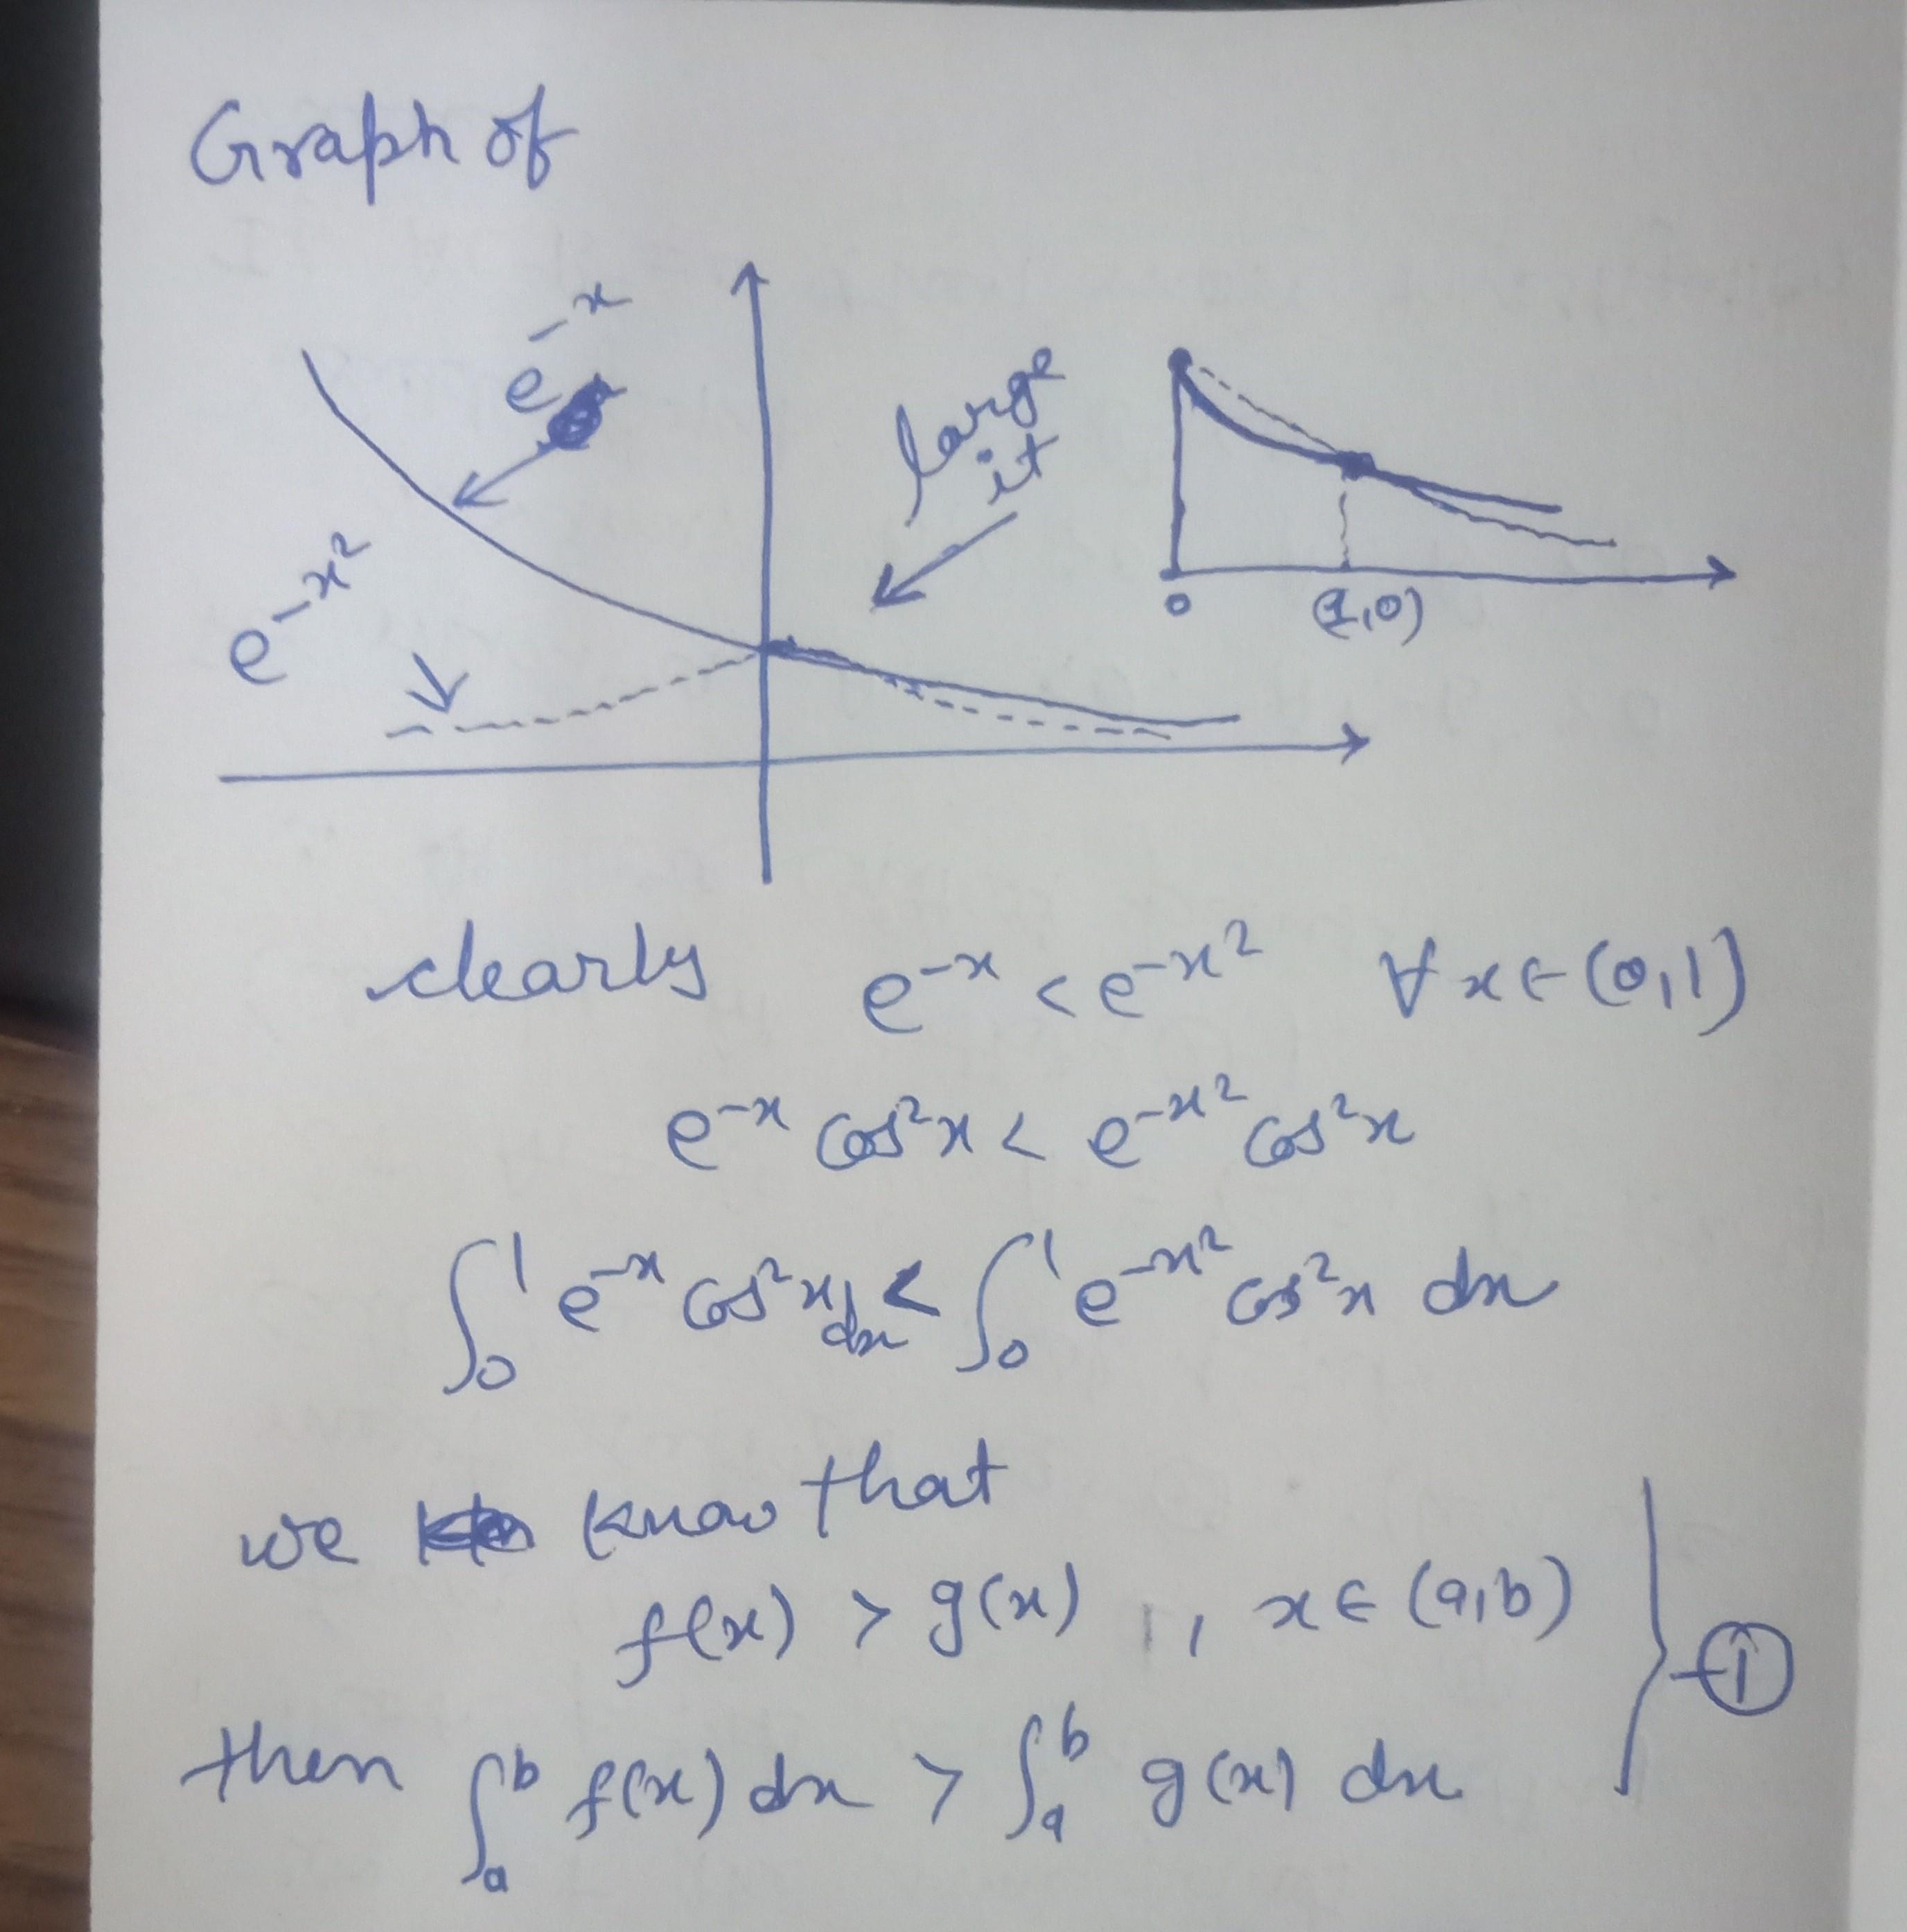 Graph of
e^-x
large
it
e^-x²
0 (1,0)
clearly e^-x < e^-x² ∀ x ∈ (0,1)
e^-x cos²x < e^-x² cos²x
∫₀¹ e^-x cos²x dx < ∫₀¹ e^-x² cos²x dx
we know that
f(x) > g(x) , x ∈ (a,b)
then ∫ₐᵇ f(x) dx > ∫ₐᵇ g(x) dx
①